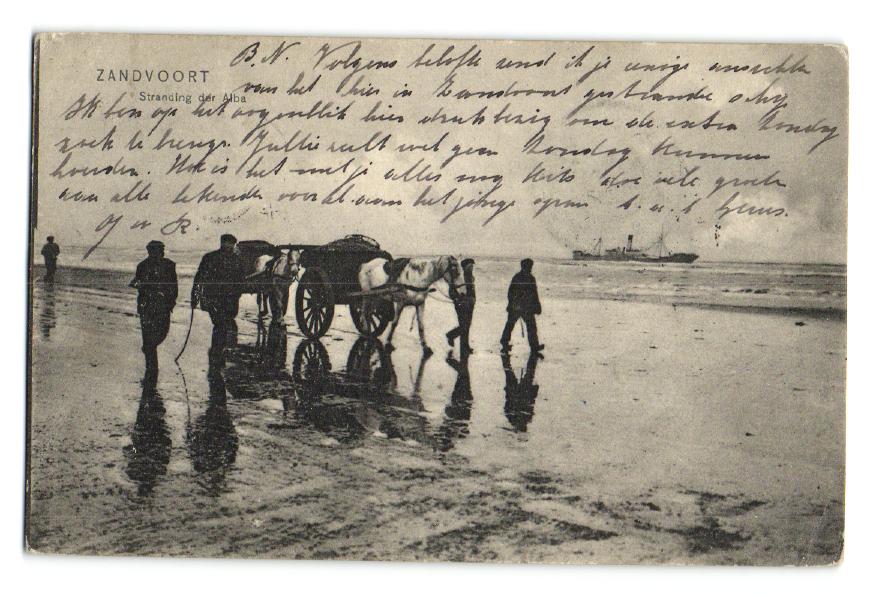 ZANDVOORT
Stranding der Alba
B.N. Volgens belofte zend ik je eenige ansichten
van het hier in Zandvoort gestrande schip
Ik ben op het oogenblik hier druk bezig om de extra Zondag
zoek te brengen. Jullie zult wel geen Zondag kunnen
houden. Hoe is het met je alles nog vele groeten
aan alle bekenden vooral aan het